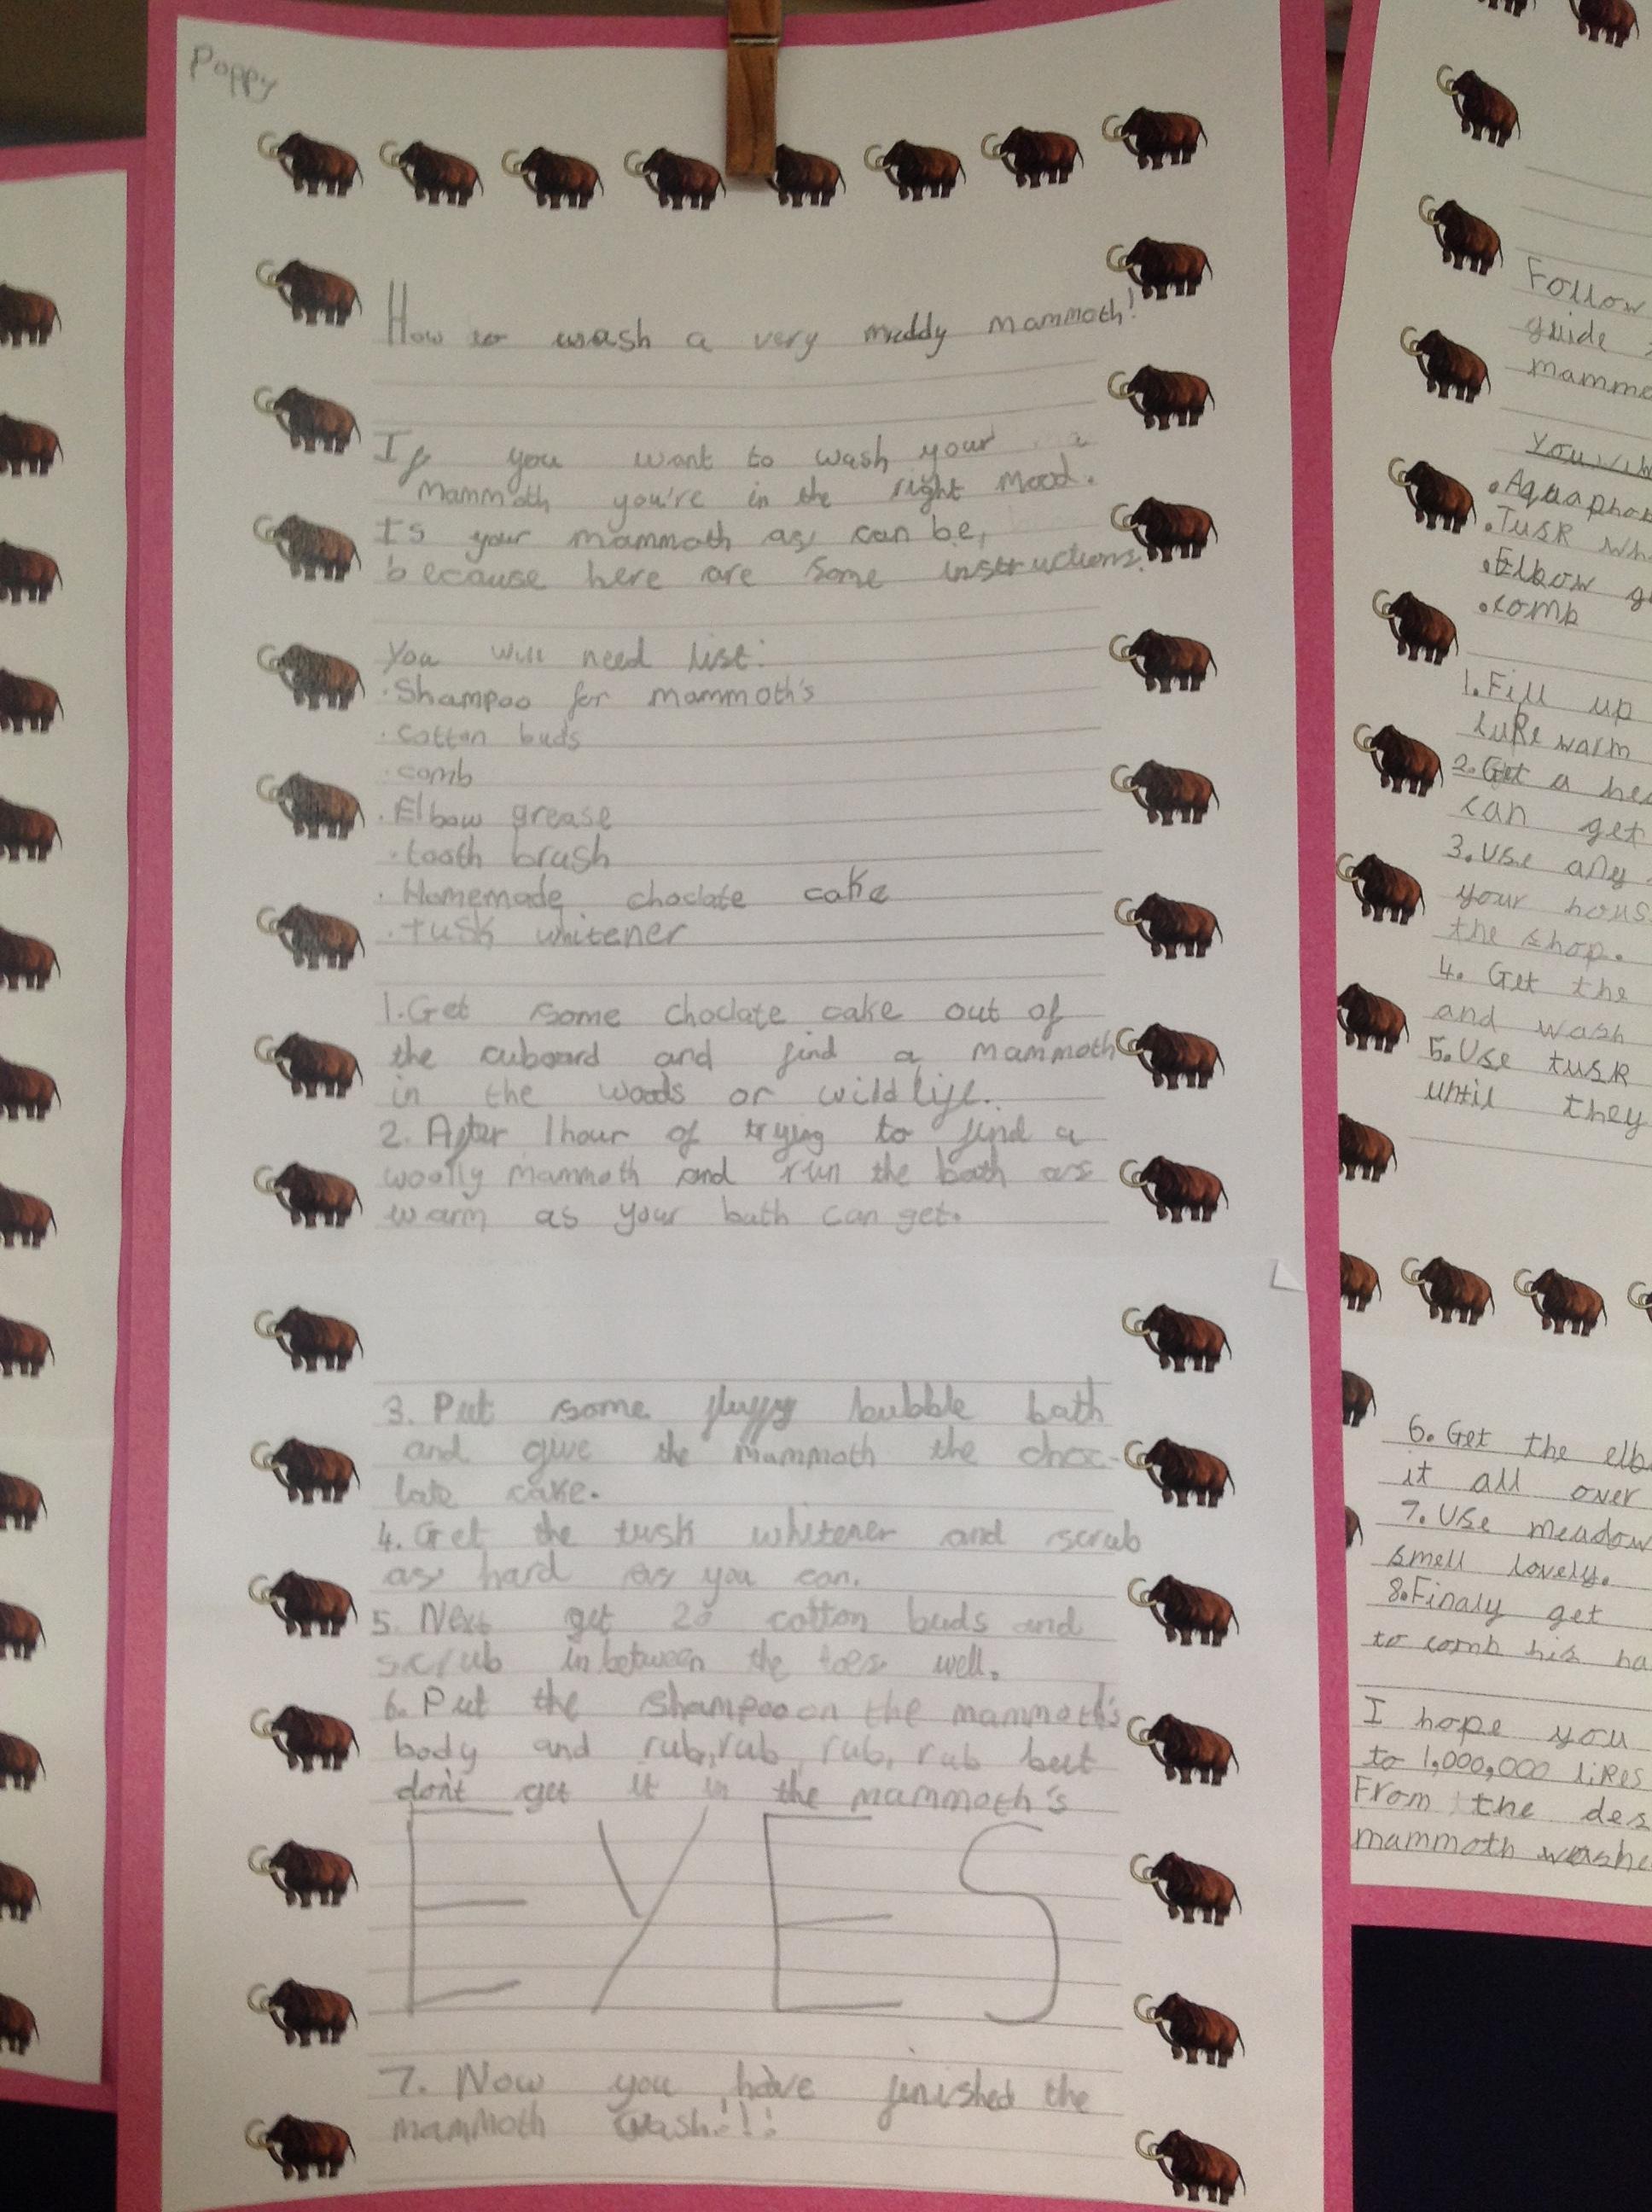 Poppy
How to wash a very muddy mammoth!
If you want to wash your
mammoth you're in the right mood.
Is your mammoth as can be,
because here are some instructions.
You will need list:
· Shampoo for mammoth's
· cotton buds
· comb
· Elbow grease
· tooth brush
· Homemade choclate cake
· tusk whitener
1. Get some choclate cake out of
the cuboard and find a mammoth
in the woods or wild life.
2. After 1 hour of trying to find a
woolly mammoth and run the bath as
warm as your bath can get.
3. Put some fluffy bubble bath
and give the mammoth the choc-
late cake.
4. Get the tusk whitener and scrub
as hard as you can.
5. Next get 20 cotton buds and
scrub in between the toes well.
6. Put the shampoo on the mammoth's
body and rub, rub, rub, rub but
don't get it in the mammoth's
EYES
7. Now you have finished the
mammoth wash!!!
Follow
guide
mamm
You
• Aquaphob
• Tusk wh
• Elbow g
• comb
1. Fill up
luke warm
2. Get a he
can get
3. Use any
your hous
the shop.
4. Get the
and wash
5. Use tusk
until they
6. Get the elb
it all over
7. Use meadow
smell lovely.
8. Finaly get
to comb his ha
I hope you
to 1,000,000 likes
From the des
mammoth washe